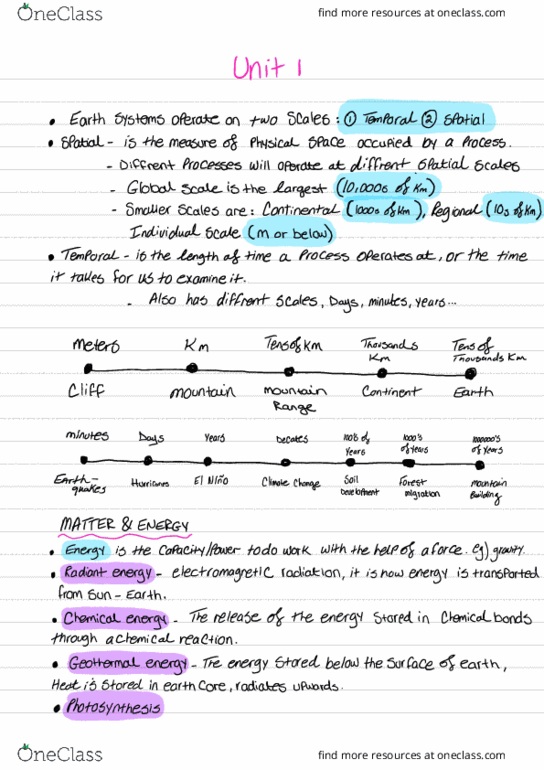 OneClass find more resources at oneclass.com
Unit 1
• Earth Systems operate on two Scales: ① Temporal ② Spatial
• Spatial - is the measure of Physical Space occupied by a Process.
- Diffrent Processes will operate at diffrent spatial Scales
- Global scale is the largest (10,000s of Km)
- Smaller Scales are: Continental (1000s of Km), Regional (10s of Km)
Individual Scale (m or below)
• Temporal - is the length of time a Process operates at, or the time
it takes for us to examine it.
- Also has diffrent scales, Days, minutes, years...
Meters Km Tens of Km Thousands Km Tens of Thousands Km
Cliff mountain mountain Range Continent Earth
minutes Days Years Decates 100's of Years 1000's of Years 1000000's of Years
Earth-quakes Hurricanes El Niño Climate Change Soil Development Forest migration mountain Building
MATTER & ENERGY
• Energy is the capacity/power to do work with the help of a force. eg) gravity.
• Radiant energy - electromagnetic radiation, it is how energy is transported
from Sun - Earth.
• Chemical energy - The release of the energy stored in Chemical bonds
through a chemical reaction.
• Geothermal energy - The energy stored below the surface of earth,
Heat is stored in earth Core, radiates upwards.
• Photosynthesis
OneClass find more resources at oneclass.com